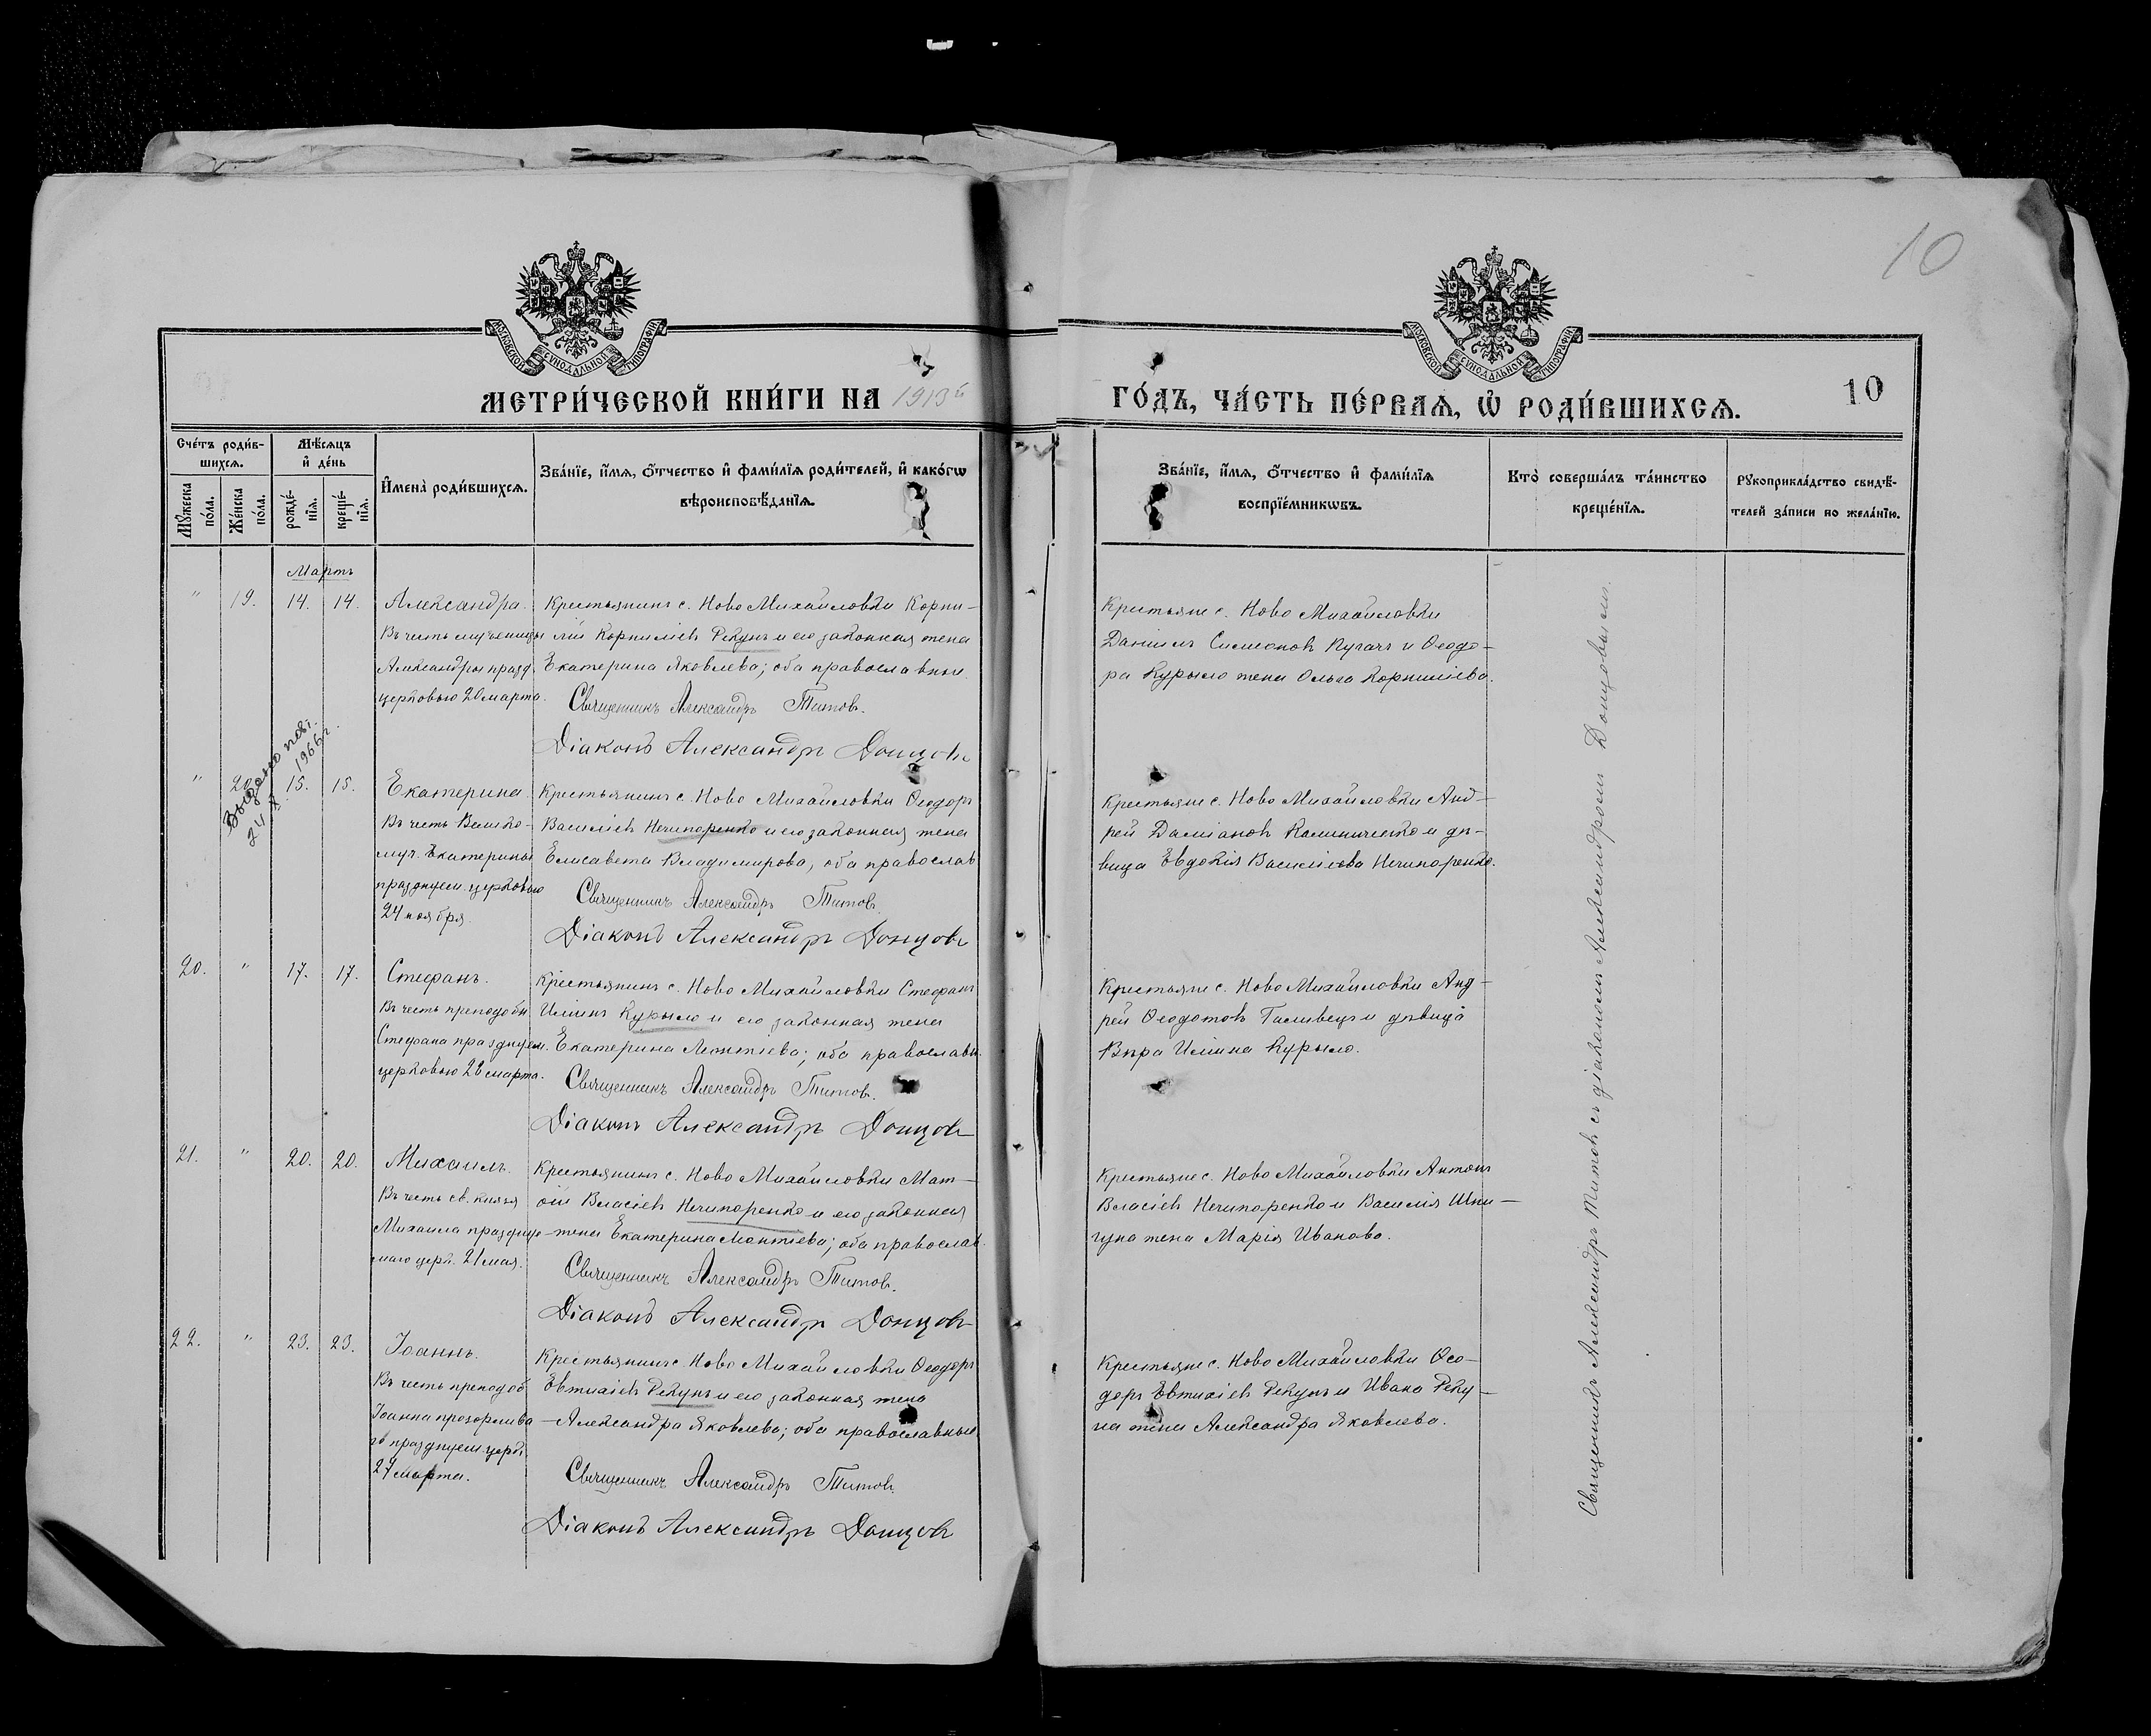 10
МОСКОВСКОЙ СѴНОДАЛЬНОЙ ТИПОГРАФІИ
МОСКОВСКОЙ СѴНОДАЛЬНОЙ ТИПОГРАФІИ
МЕТРИ́ЧЕСКОЙ КНИ́ГИ НА 1913й
ГО́ДЪ, ЧА́СТЬ ПЕ́РВАѦ, Ѡ҆ РОДИ́ВШИХСѦ.
10
Сче́тъ роди́в-
шихсѧ.
Мꙋ́жеска
по́ла.
Же́нска
по́ла.
Мѣ́сѧцъ
и҆ де́нь
рожде́-
нїѧ.
креще́-
нїѧ.
И҆мена̀ роди́вшихсѧ.
Зва́нїе, и҆́мѧ, ѻ҆́тчество и҆ фами́лїѧ роди́телей, и҆ како́гѡ
вѣроисповѣ́данїѧ.
Зва́нїе, и҆́мѧ, ѻ҆́тчество и҆ фами́лїѧ
воспрїе́мникѡвъ.
Кто̀ соверша́лъ та́инство
креще́нїѧ.
Рꙋкоприкла́дство свидѣ́-
телей за́писи по жела́нїю.
Мартъ
" 19. 14. 14.
Александра.
Въ честь мученицы
Александры празд.
церковью 20 марта.
Крестьянинъ с. Ново Михайловки Корни-
лій Корниліевъ Рекунъ и его законная жена
Екатерина Яковлева; оба православные.
Священникъ Александръ Титовъ.
Діаконъ Александръ Донцовъ
Крестьяне с. Ново Михайловки
Даніилъ Симеоновъ Пугачъ и Ѳеодо-
ра Курыло жена Ольга Корниліева.
Выдано повт.
24 X 1966 г.
" 20. 15. 15.
Екатерина.
Въ честь Велико-
муч. Екатерины
празднуем. церковью
24 ноября.
Крестьянинъ с. Ново Михайловки Ѳеодоръ
Василіевъ Нечипоренко и его законная жена
Елисавета Владимирова, оба православ
Священникъ Александръ Титовъ.
Діаконъ Александръ Донцовъ
Крестьяне с. Ново Михайловки Анд-
рей Даміановъ Калиниченко и дѣ-
вица Евдокія Василіева Нечипоренко.
20. " 17. 17.
Стефанъ.
Въ честь преподобн.
Стефана празднуем.
церковью 28 марта.
Крестьянинъ с. Ново Михайловки Стефанъ
Илiинъ Курыло и его законная жена
Екатерина Леонтіева; оба православн.
Священникъ Александръ Титовъ.
Діаконъ Александръ Донцовъ
Крестьяне с. Ново Михайловки Анд-
рей Ѳеодотовъ Галивецъ и дѣвица
Вѣра Иліина Курыло.
21. " 20. 20.
Михаилъ.
Въ честь св. князя
Михаила праздну-
маго церк. 21 мая.
Крестьянинъ с. Ново Михайловки Мат-
ѳій Власіевъ Нечипоренко и его законная
жена Екатерина Леонтіева; оба православ.
Священникъ Александръ Титовъ.
Діаконъ Александръ Донцовъ
Крестьяне с. Ново Михайловки Антонъ
Власіевъ Нечипоренко и Василія Шпи-
гуна жена Марія Иванова.
22. " 23. 23.
Іоаннъ.
Въ честь преподоб.
Іоанна прозорлива
го празднуем. церк.
27 марта.
Крестьянинъ с. Ново Михайловки Ѳеодоръ
Евтихіевъ Рекунъ и его законная жена
Александра Яковлева; оба православные
Священникъ Александръ Титовъ.
Діаконъ Александръ Донцовъ
Крестьяне с. Ново Михайловки Ѳео-
доръ Евтихіевъ Рекунъ и Ивана Реку-
на жена Александра Яковлева.
Священникъ Александръ Титовъ съ діакономъ Александромъ Донцовымъ.